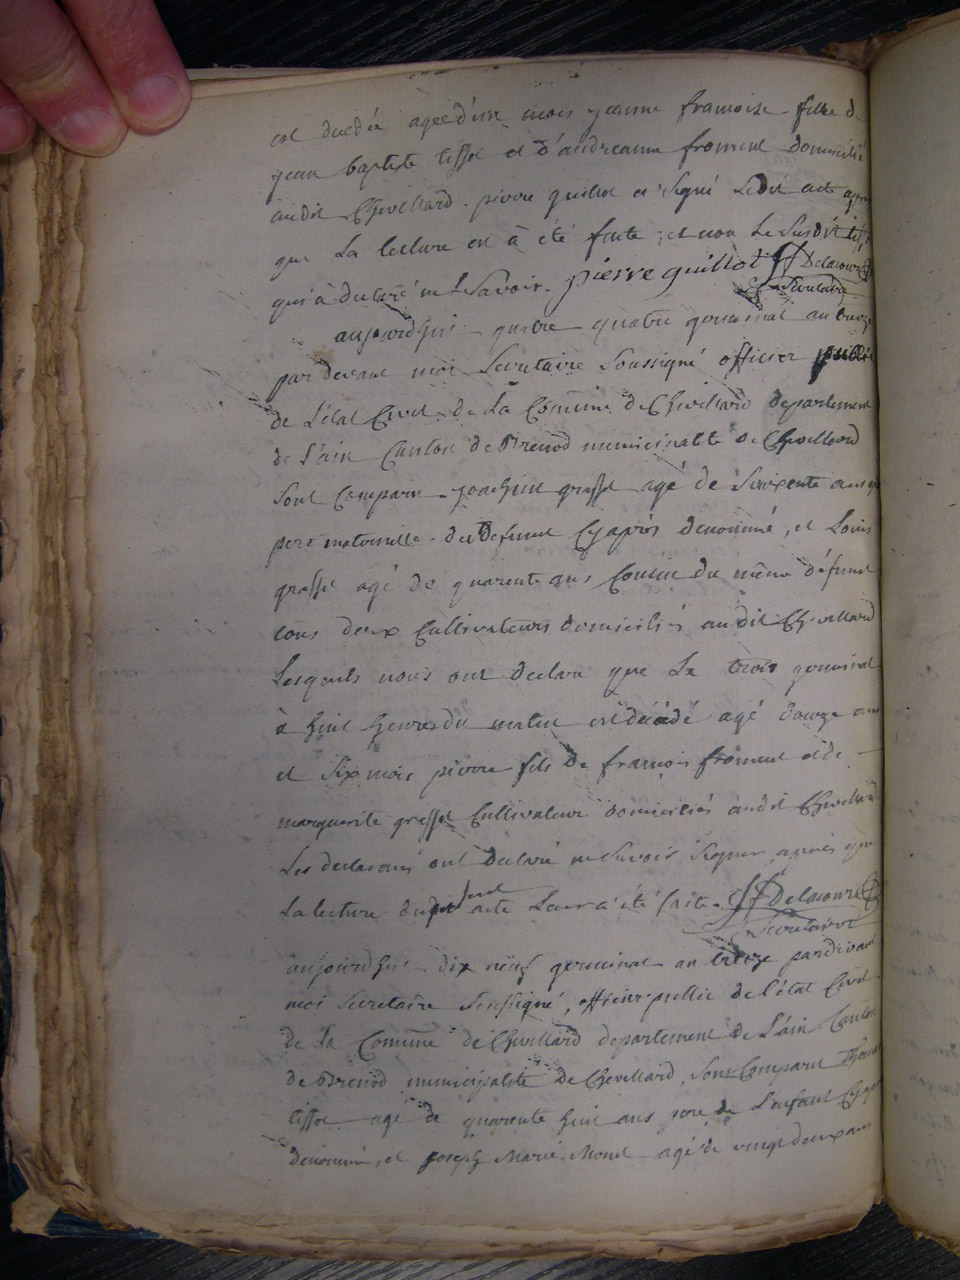 est decédée agée d'un mois jeanne francoise fille d
jean baptiste tissot et d'andreanne froment domicilié
audit Chevillard. pierre guillot a signé Ledit acte après
que La lecture en à été faite, et non Le susdit tissot
qui à declaré ne Le savoir. pierre guillot Delacour
Secrétaire
aujourd'hui quatre germinal an treize
par devant moi Secretaire Soussigné officier public
de L'état Civil de La Commune de Chevillard département
de L'ain Canton de Brenod municipalité de Chevillard
Sont Comparu joachim grasset agé de Soixente ans
pere maternelle du defunt Cyaprès denommé, et Louis
grasset agé de quarente ans Cousin du même défunt
tous deux Cultivateurs domiciliés audit Chevillard
Lesquels nous ont declaré que Le trois germinal
à huit heures du matin est décédé agé douze ans
et six mois pierre fils de francois froment et de
marguerite grasset Cultivateur domiciliés audit Chevillard
Les declarans ont declaré ne Savoir Signer après que
La lecture du present acte Leur a été faite. Delacour
Secrétaire
aujourd'hui dix neuf germinal an treize pardevant
moi secretaire soussigné, officier public de l'état Civil
de La Commune de Chevillard departement de L'ain Canton
de Brenod municipalité de Chevillard, Sont Comparu
tissot agé de quarente huit ans pere de L'enfant Cyaprès
denommé, et joseph Marie Monet agé de vingt deux ans